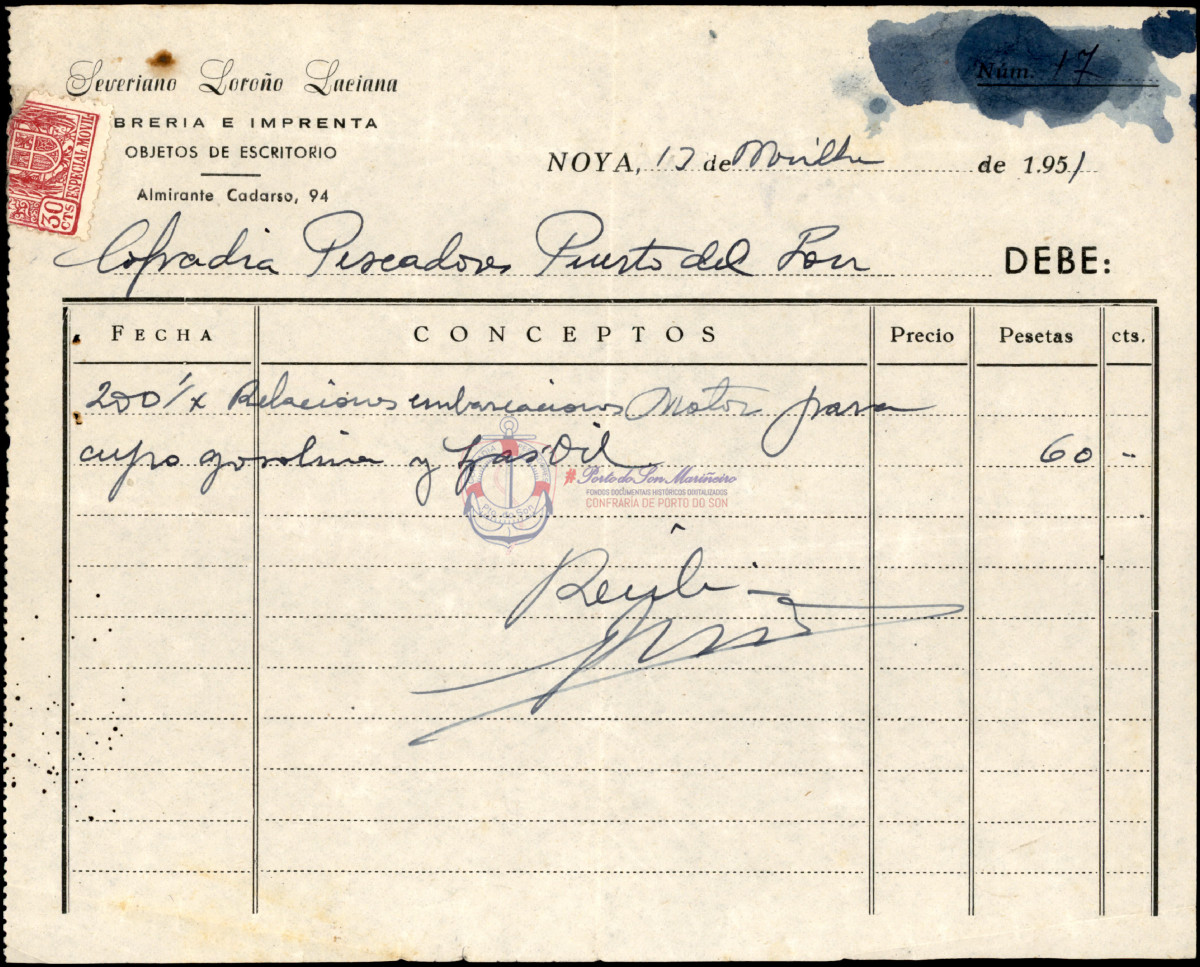 Severiano Loroño Laciana
Núm. 17
BRERIA E IMPRENTA
OBJETOS DE ESCRITORIO
Almirante Cadarso, 94
30 CTS
ESPECIAL MOVIL
NOYA, 13 de de 1.951
Cofradia Pescadores Puerto del Son DEBE:
FECHA CONCEPTOS Precio Pesetas cts.
200 Relaciones embarcaciones Motor para
cupo gasolina y Gas-Oil 60 -
#Porto do Son Mariñeiro
FONDOS DOCUMENTAIS HISTÓRICOS DIXITALIZADOS
CONFRARÍA DE PORTO DO SON
Pto. do Son
Recibi